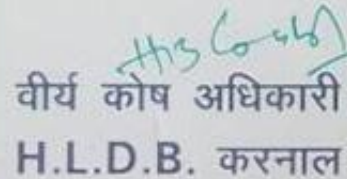 वीर्य कोष अधिकारी
H.L.D.B. करनाल